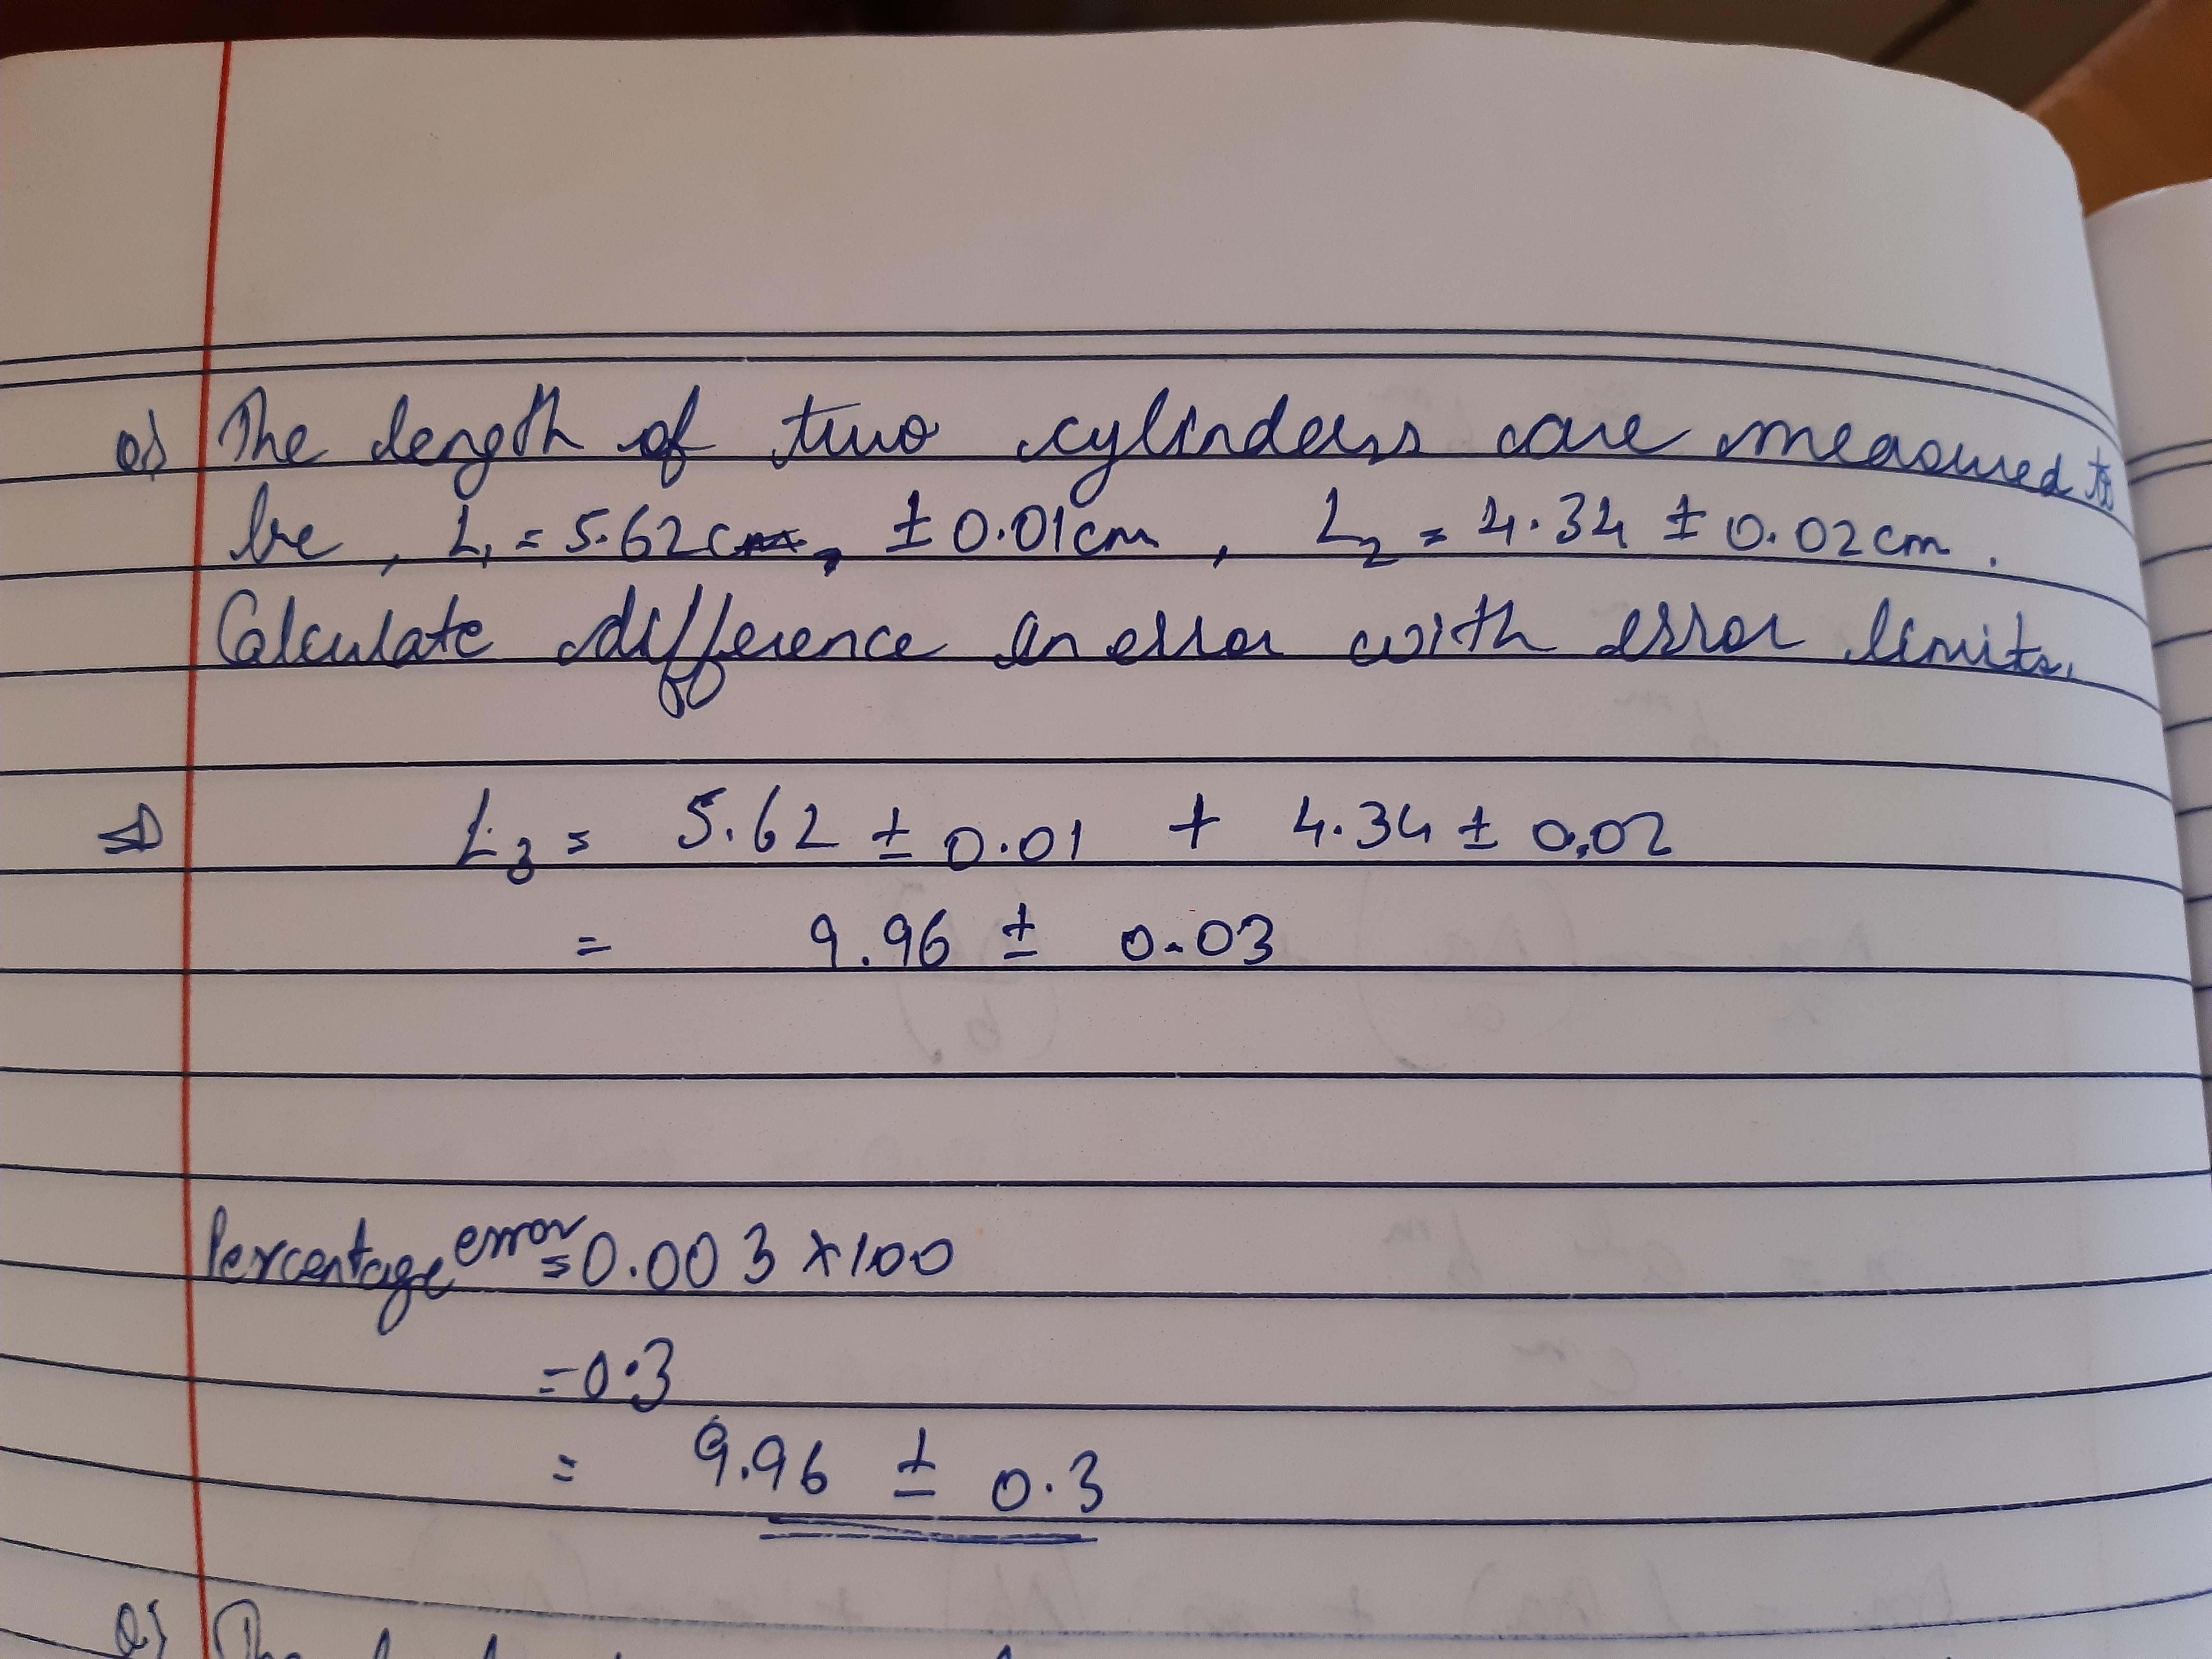 Q) The length of two cylinders are measured to
be, L₁ = 5.62cm, ± 0.01cm, L₂ = 4.34 ± 0.02cm.
Calculate difference in error with error limits.
⇒ L₃ = 5.62 ± 0.01 + 4.34 ± 0.02
= 9.96 ± 0.03
Percentage error = 0.003 × 100
= 0.3
= 9.96 ± 0.3
Q) The